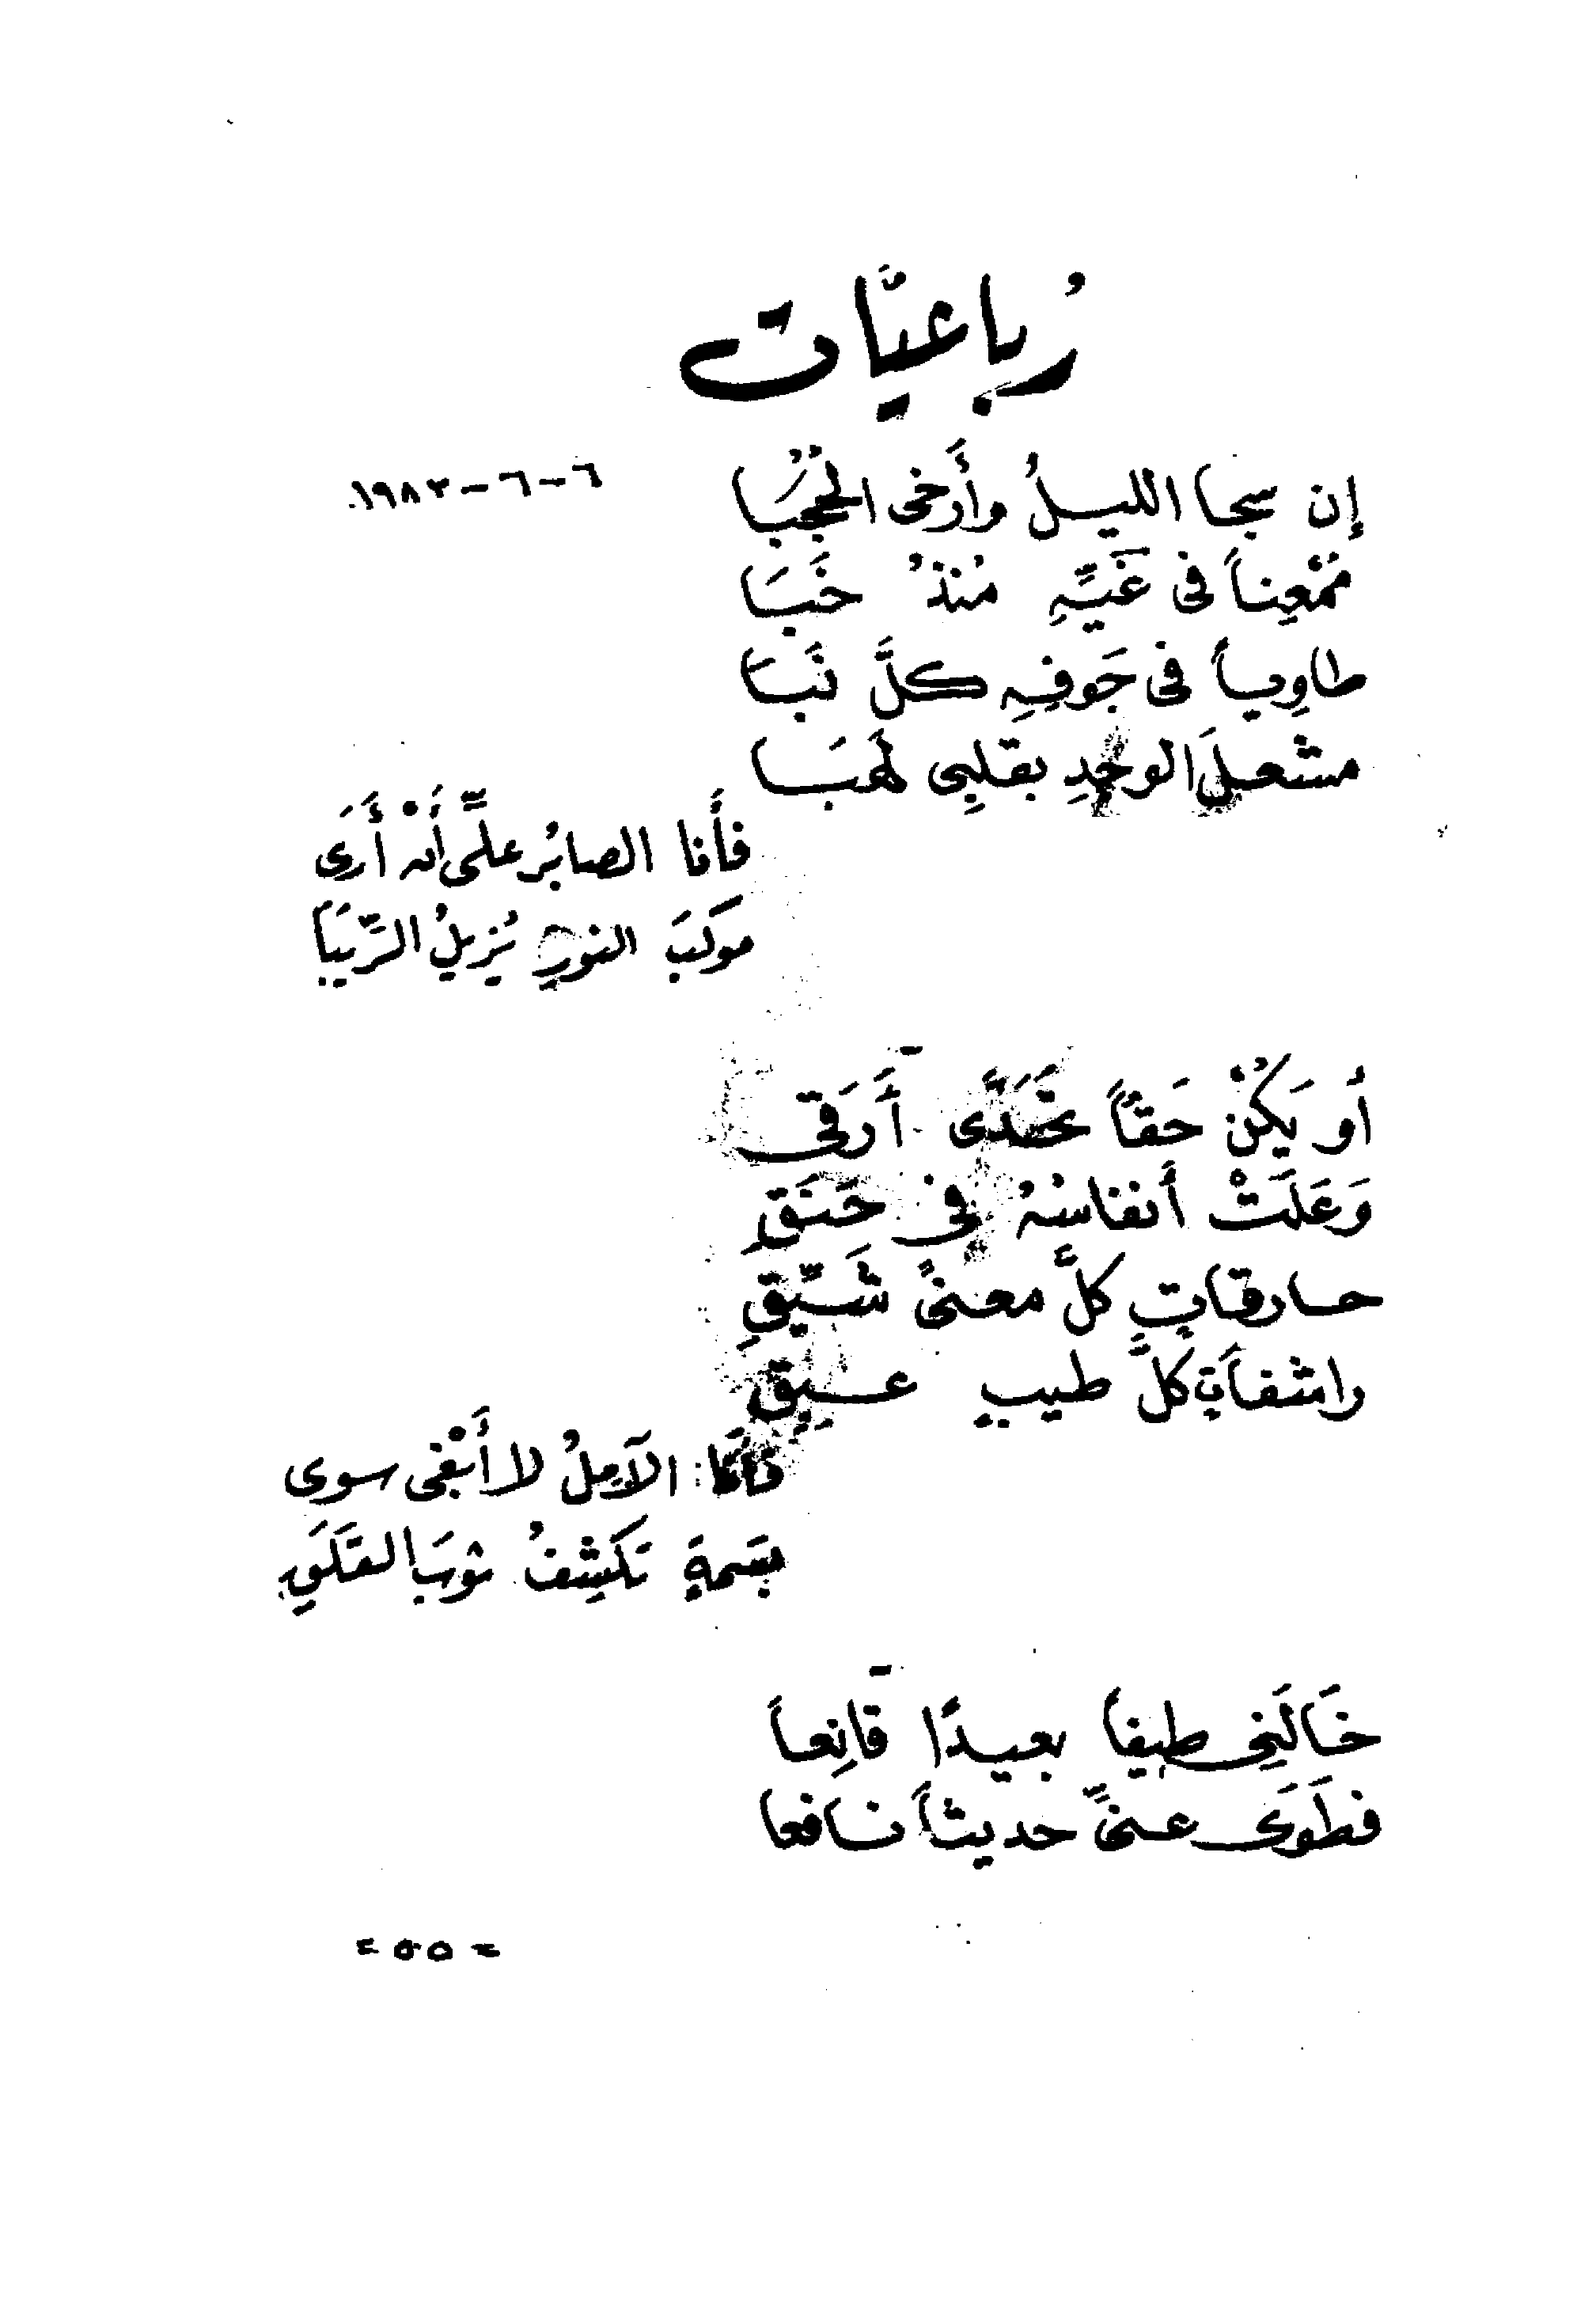 رُباعيَّات
إن سجا الليلُ وأَرخى الحُجُبَا
٦-٦-١٩٨٣
مُمْعِناً فى غَيِّهِ مُنذُ خَبَا
طاوِياً فى جَوفِهِ كلَّ نَبَا
مشعلَ الوجدِ بقلبِى لَهَبَا
فأَنا الصابُر علِّى أَنْ أَرَى
موكبَ النورِ يُزيلُ الرِّيَبَا
أو يَكُنْ حَقاً تَحَدَّى أَرَقى
وَعَلَتْ أنفاسُهُ فى حَنَقِ
حارقاتٍ كلَّ معنىً شَيِّقِ
راشفاتٍ كلَّ طيبٍ عبقِ
فأنا الآمِلُ لا أَبْغى سوى
بسَمةٍ تكشِفُ ثوبَ القَلَقِ
خَالَنِى طيفاً بعيدًا قانِعاً
فطَوَى عنىِّ حديثاً نافعا
= ٥٥ =